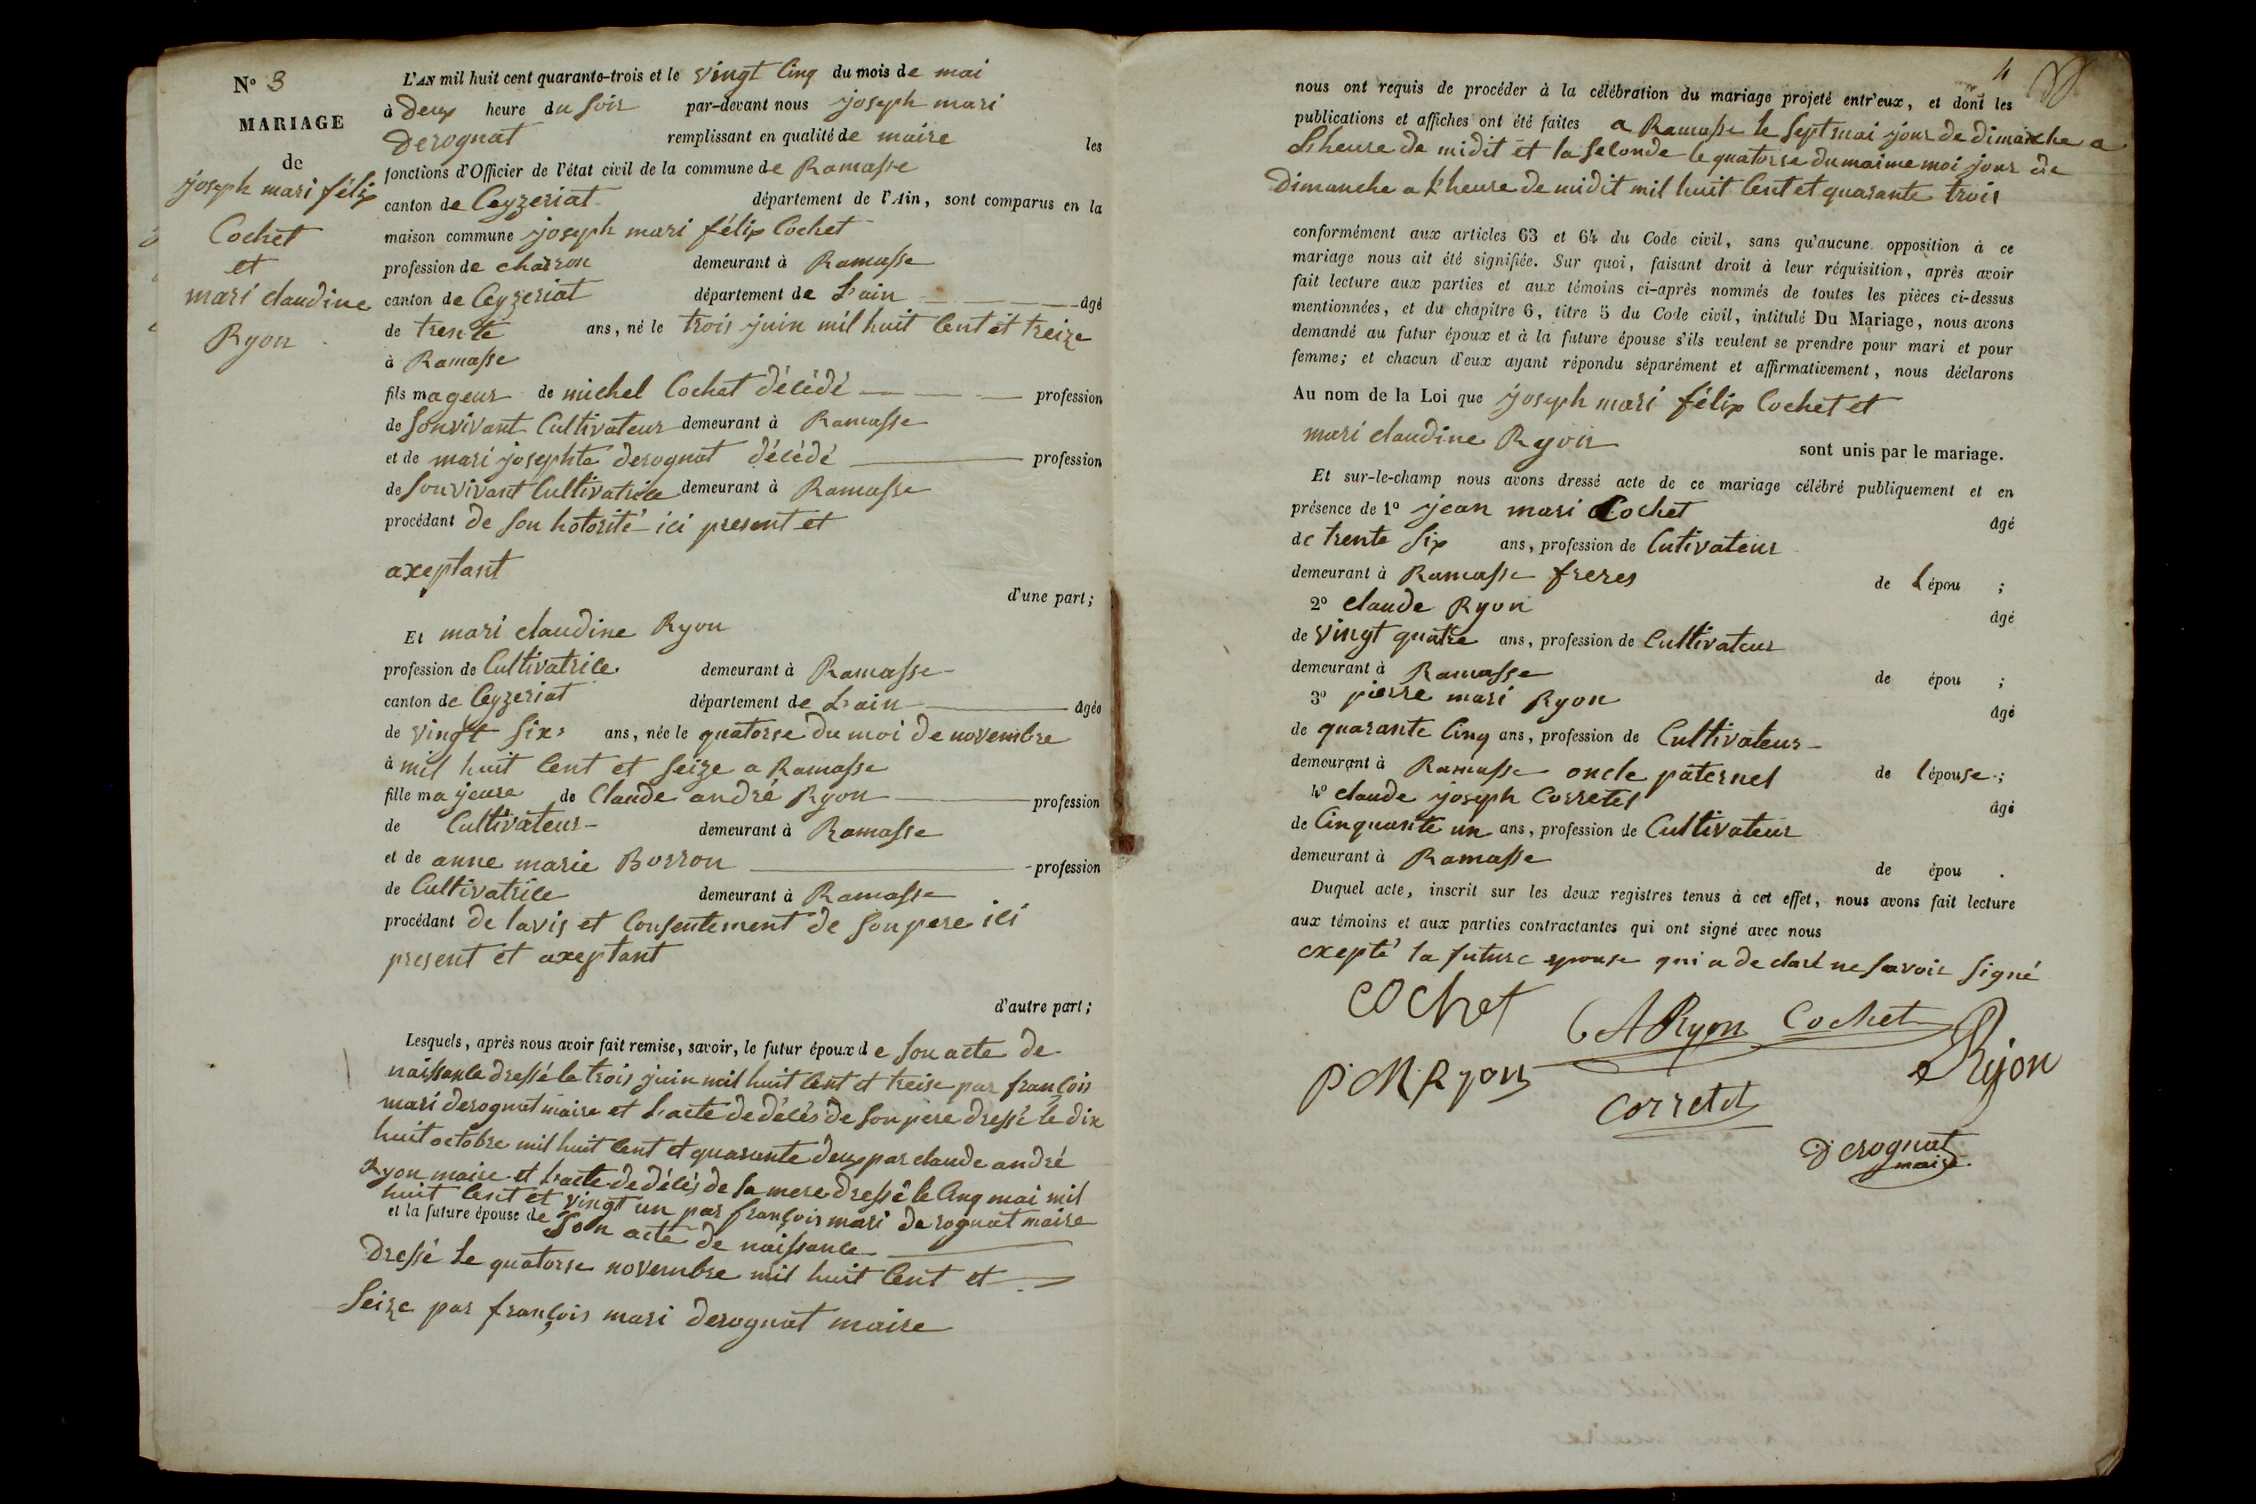 N° 3
MARIAGE
de
joseph mari félix
Cochet
et
mari claudine
Ryon
L'AN mil huit cent quarante-trois et le vingt cinq du mois de mai
à deux heure du soir par-devant nous joseph mari
Derognat remplissant en qualité de maire les
fonctions d'Officier de l'état civil de la commune de Ramasse
canton de Ceyzeriat département de l'Ain, sont comparus en la
maison commune joseph mari félix Cochet
profession de charron demeurant à Ramasse
canton de Ceyzeriat département de L'ain âgé
de trente ans, né le trois juin mil huit cent et treize
à Ramasse
fils mageur de michel Cochet décédé profession
de sonvivant Cultivateur demeurant à Ramasse
et de mari josephte derognat décédé profession
de sonvivant Cultivatrice demeurant à Ramasse
procédant de son hotorité ici present et
axeptant
d'une part;
Et mari claudine Ryon
profession de Cultivatrice demeurant à Ramasse
canton de Ceyzeriat département de L'ain âgée
de vingt six ans, née le quatorse du moi de novembre
à mil huit cent et seize a Ramasse
fille majeure de Claude andré Ryon profession
de Cultivateur demeurant à Ramasse
et de anne marie Borron profession
de Cultivatrice demeurant à Ramasse
procédant de lavis et consentement de son pere ici
present et axeptant
d'autre part;
Lesquels, après nous avoir fait remise, savoir, le futur époux de son acte de
naissance dressé le trois juin mil huit cent et treise par françois
mari derognat maire et L'acte de décès de son père dressé le dix
huit octobre mil huit cent et quarante deux par claude andré
Ryon maire et L'acte de décés de sa mere dressé le cinq mai mil
huit cent et vingt un par françois mari derognat maire
et la future épouse de son acte de naissance
dressé le quatorse novembre mil huit cent et
seize par françois mari derognat maire
4
nous ont requis de procéder à la célébration du mariage projeté entr'eux, et dont les
publications et affiches ont été faites a Ramasse le sept mai jour de dimanche a
L'heure de midit et la seconde le quatorse du maime moi jour de
dimanche a l'heure de midit mil huit cent et quarante trois
conformément aux articles 63 et 64 du Code civil, sans qu'aucune opposition à ce
mariage nous ait été signifiée. Sur quoi, faisant droit à leur réquisition, après avoir
fait lecture aux parties et aux témoins ci-après nommés de toutes les pièces ci-dessus
mentionnées, et du chapitre 6, titre 5 du Code civil, intitulé Du Mariage, nous avons
demandé au futur époux et à la future épouse s'ils veulent se prendre pour mari et pour
femme; et chacun d'eux ayant répondu séparément et affirmativement, nous déclarons
Au nom de la Loi que joseph mari félix Cochet et
mari claudine Ryon sont unis par le mariage.
Et sur-le-champ nous avons dressé acte de ce mariage célébré publiquement et en
présence de 1° jean mari Cochet âgé
de trente six ans, profession de Cutivateur
demeurant à Ramasse freres de L épou ;
2° claude Ryon âgé
de vingt quatre ans, profession de Cultivateur
demeurant à Ramasse de épou ;
3° pierre mari Ryon âgé
de quarante cinq ans, profession de Cultivateur
demeurant à Ramasse oncle paternel de l épouse ;
4° claude joseph Corretel âgé
de Cinquante un ans, profession de Cultivateur
demeurant à Ramasse de épou .
Duquel acte, inscrit sur les deux registres tenus à cet effet, nous avons fait lecture
aux témoins et aux parties contractantes qui ont signé avec nous
exepté la future epouse qui a declaré ne savoir signé
Cochet
C A Ryon Cochet
P. M. Ryon Ryon
Corretel
Derognat
maire